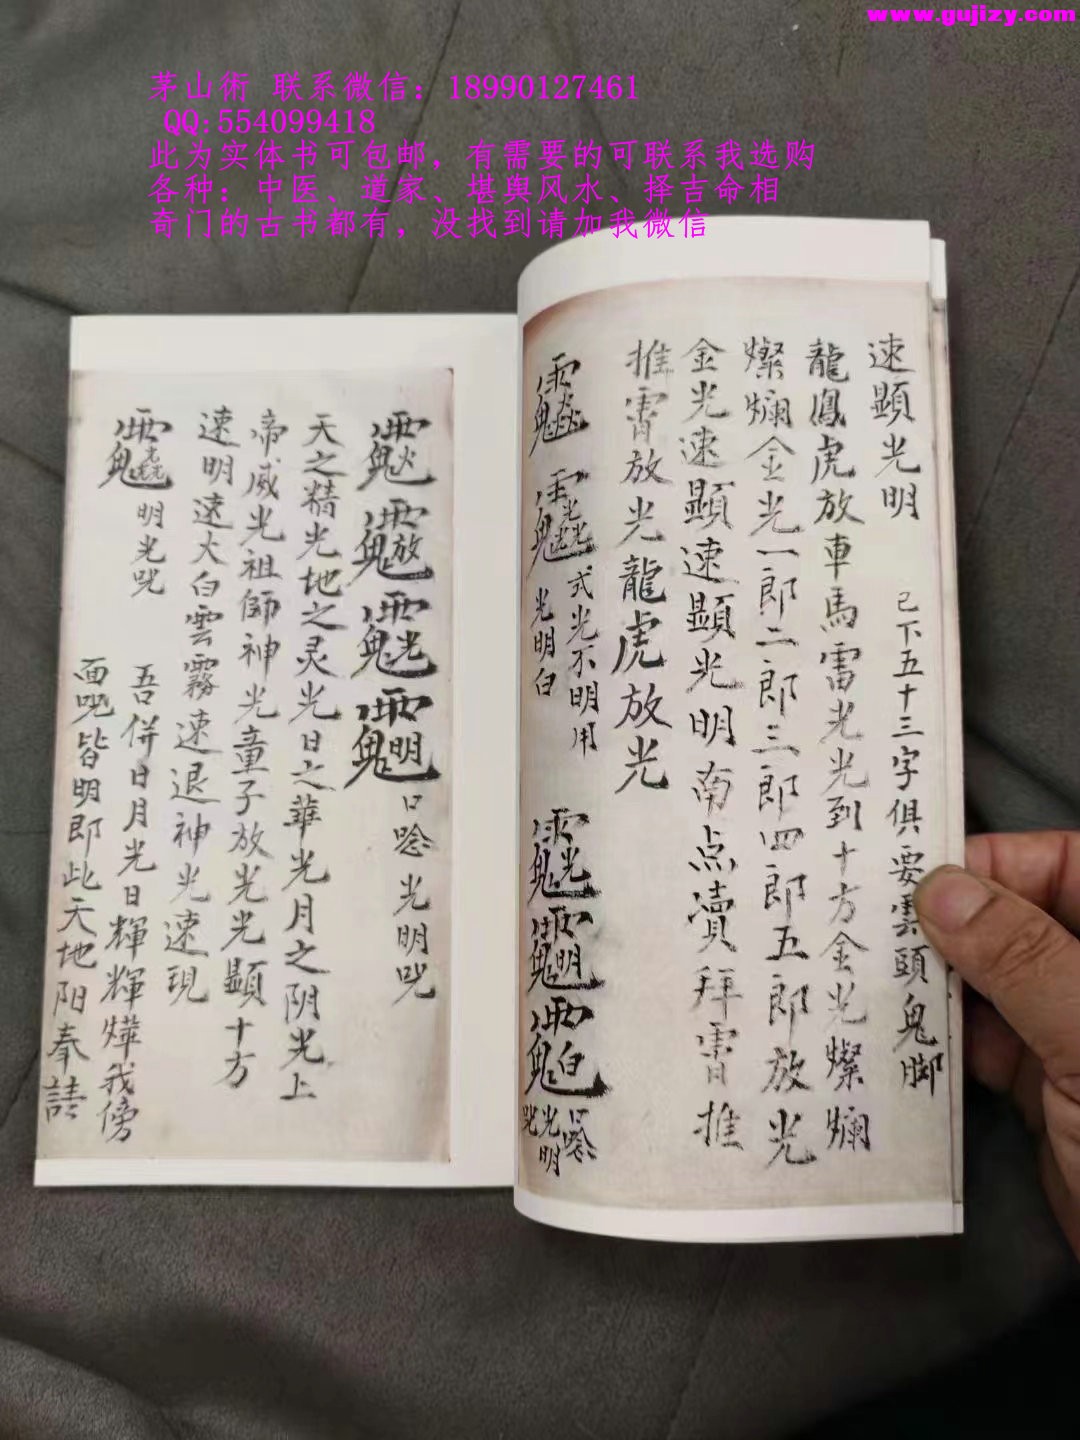 www.gujizy.com
茅山術 联系微信：18990127461
QQ:554099418
此为实体书可包邮，有需要的可联系我选购
各种：中医、道家、堪舆风水、择吉命相
奇门的古书都有，没找到请加我微信
速顯光明 已下五十三字俱要雲頭鬼脚
龍鳳虎放車馬雷光光到十方金光燦爛
燦爛金光一郎二郎三郎四郎五郎放光
金光速顯速顯光明南点瀆拜霄推
推霄放光龍虎放光
式光不明用
光明白
口唸
光明
咒
口唸光明咒
天之精光地之灵光日之華光月之阴光上
帝威光祖師神光童子放光光顯十方
速明遠大白雲霧速退神光速現
明光咒
吾併日月光日輝輝燁我傍
面咒皆明即此天地阳奉請